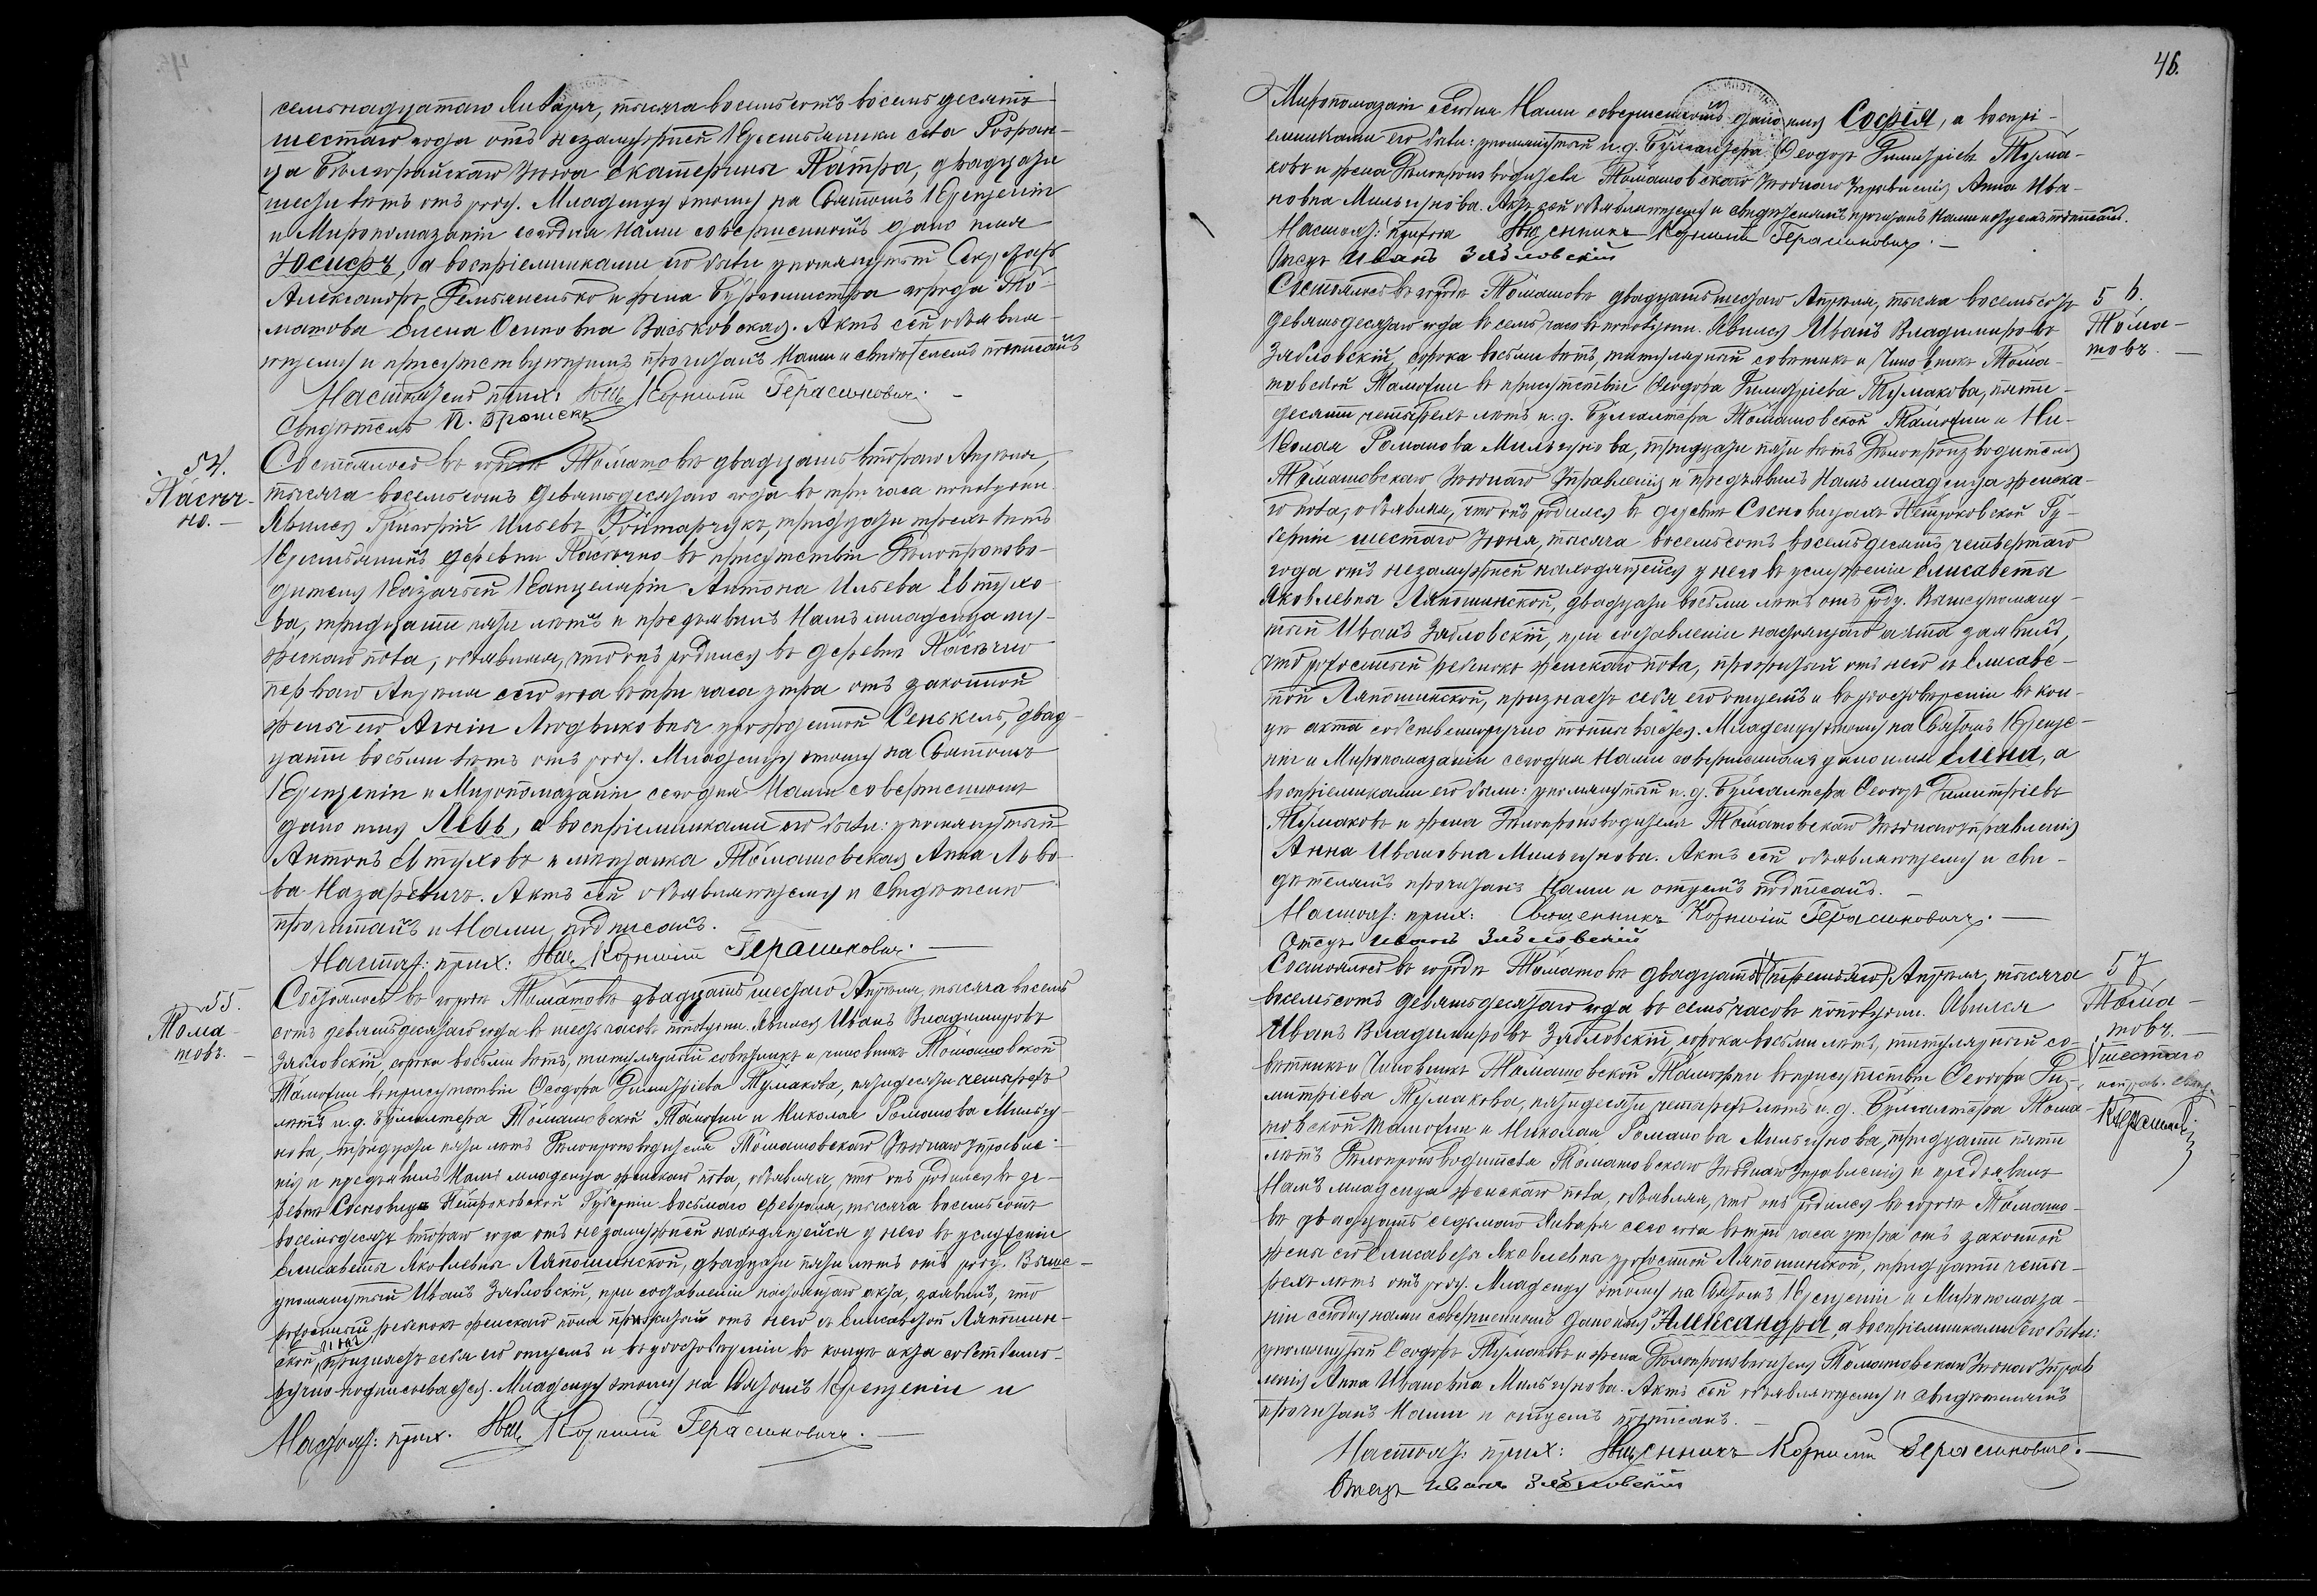 семьнадцатаго Января, тысяча восемьсотъ восемьдесятъ
шестаго года отъ незамужней крестьянки села
Бѣлгорайскаго Уѣзда Екатерины Патра, двадцати
шести лѣтъ отъ роду. Младенцу этому на Святомъ Крещеніи
и Мѵропомазаніи сегодня Нами совершенномъ дано имя
Іосифъ, а воспріемниками его были упомянутый
Александръ и жена Бургомистра города То-
машова Елена Осиповна Васьковская. Актъ сей объявля-
ющему и присутствующимъ прочитанъ Нами и свидѣтелемъ подписанъ
Настоятель прих: Свщ. Корнилій Герасимовичъ.
Свидѣтель П.
54.
Пасѣч-
но. —
Состоялось въ городѣ Томашовѣ двадцать втораго Апрѣля,
тысяча восемьсотъ девяностаго года въ три часа пополудни.
Явился Григорій Ильевъ Ройтарчукъ, тридцати трехъ лѣтъ
крестьянинъ деревни Пасѣчно въ присутствіи Дѣлопроизво-
дителя Казачьей Канцеляріи Антона Ильева Евтухо-
ва, тридцати пяти лѣтъ и предъявилъ Намъ младенца му-
жескаго пола, объявляя, что онъ родился въ деревнѣ Пасѣчно
перваго Апрѣля сего года въ три часа утра отъ законной
жены его Анны Людвиковны урожденной Сенькель, двад-
цати восьми лѣтъ отъ роду. Младенцу этому на Святомъ
Крещеніи и Мѵропомазаніи сегодня Нами совершенномъ
дано имя Левъ, а воспріемниками его были: упомянутый
Антонъ Евтуховъ и мѣщанка Томашовская Анна Льво-
ва Назаревичъ. Актъ сей объявляющему и свидѣтелю
прочитанъ и Нами подписанъ.
Настоят: прих: Свщ. Корнилій Герасимовичъ. —
55.
Тома-
шовъ. —
Состоялось въ городѣ Томашовѣ двадцать шестаго Апрѣля, тысяча восемь
сотъ девяностаго года въ шесть часовъ пополудни. Явился Иванъ Владиміровъ
Зябловскій, сорока восьми лѣтъ, титулярный совѣтникъ и чиновникъ Томашовской
Таможни въ присутствіи Ѳеодора Димитріева Тумакова, пятидесяти четырехъ
лѣтъ и.д. Бухгалтера Томашовской Таможни и Николая Романова Мильгу-
нова, тридцати пяти лѣтъ Дѣлопроизводителя Томашовскаго Уѣзднаго Управле-
нія и предъявилъ Намъ младенца женскаго пола, объявляя, что онъ родился въ де-
ревнѣ Сосновицѣ Петроковской Губерніи восьмаго Февраля, тысяча восемьсотъ
восемьдесятъ втораго года отъ незамужней находящейся у него въ услуженіи
Елисаветы Яковлевны Ляпошинской, двадцати пяти лѣтъ отъ роду. Выше-
упомянутый Иванъ Зябловскій, при составленіи настоящаго акта, заявилъ, что
рожденный ребенокъ женскаго пола прижитый отъ него съ Елисаветой Ляпошин-
ской, признаетъ себя его отцемъ и въ удостовѣреніи въ концѣ акта собственно-
ручно подписывается. Младенцу этому на Святомъ Крещеніи и
Настоят: прих. Свщ. Корнилій Герасимовичъ. —
46.
Мѵропомазаніи сегодня Нами совершенномъ дано имя Софія, а воспрі-
емниками его были: упомянутый и.д. Бухгалтера Ѳеодоръ Димитріевъ Тума-
ковъ и жена Дѣлопроизводителя Томашовскаго Уѣзднаго Управленія Анна Ива-
новна Мильгунова. Актъ сей объявляющему и свидѣтелямъ прочитанъ Нами и отцемъ подписанъ.
Настоят: прихода Священникъ Корнилій Герасимовичъ. —
Отецъ Иванъ Зябловскій
56.
Тома-
шовъ. —
Состоялось въ городѣ Томашовѣ двадцать шестаго Апрѣля, тысяча восемьсотъ
девяностаго года въ семь часовъ пополудни. Явился Иванъ Владиміровъ
Зябловскій, сорока восьми лѣтъ, титулярный совѣтникъ и чиновникъ Тома-
шовской Таможни въ присутствіи Ѳеодора Димитріева Тумакова, пяти-
десяти четырехъ лѣтъ и.д. Бухгалтера Томашовской Таможни и Ни-
колая Романова Мильгунова, тридцати пяти лѣтъ Дѣлопроизводителя
Томашовскаго Уѣзднаго Управленія и предъявилъ Намъ младенца женска-
го пола, объявляя, что онъ родился въ деревнѣ Сосновицахъ Петроковской Гу-
берніи шестаго Іюня, тысяча восемьсотъ восемьдесятъ четвертаго
года отъ незамужней находящейся у него въ услуженіи Елисаветы
Яковлевны Ляпошинской, двадцати восьми лѣтъ отъ роду. Вышеупомяну-
тый Иванъ Зябловскій, при составленіи настоящаго акта заявилъ,
что рожденный ребенокъ женскаго пола, прижитый отъ него съ Елисаве-
той Ляпошинской, признаетъ себя его отцемъ и въ удостовѣреніи въ кон-
цѣ акта собственноручно подписывается. Младенцу этому на Святомъ Креще-
ніи и Мѵропомазаніи сегодня Нами совершенномъ дано имя Елена, а
воспріемниками его были: упомянутый и.д. Бухгалтера Ѳеодоръ Димитріевъ
Тумаковъ и жена Дѣлопроизводителя Томашовскаго Уѣзднаго Управленія
Анна Ивановна Мильгунова. Актъ сей объявляющему и сви-
дѣтелямъ прочитанъ Нами и отцемъ подписанъ. —
Настоят: прих: Священникъ Корнилій Герасимовичъ. —
Отецъ Иванъ Зябловскій
57
Тома-
шовъ. —
шестаго
Состоялось въ городѣ Томашовѣ двадцать (третьяго) Апрѣля, тысяча
восемьсотъ девяностаго года въ семь часовъ пополудни. Явился
Иванъ Владиміровъ Зябловскій, сорока восьми лѣтъ, титулярный со-
вѣтникъ и чиновникъ Томашовской Таможни въ присутствіи Ѳеодора Ди-
митріева Тумакова, пятидесяти четырехъ лѣтъ и.д. Бухгалтера Тома-
шовской Таможни и Николая Романова Мильгунова, тридцати пяти
лѣтъ Дѣлопроизводителя Томашовскаго Уѣзднаго Управленія и предъявилъ
Намъ младенца женскаго пола, объявляя, что онъ родился въ городѣ Томашо-
вѣ двадцать седьмаго Января сего года въ три часа утра отъ законной
жены его Елисаветы Яковлевны урожденной Ляпошинской, тридцати четы-
рехъ лѣтъ отъ роду. Младенцу этому на Святомъ Крещеніи и Мѵропомаза-
ніи сегодня нами совершенномъ дано имя Александра, а воспріемниками его были:
упомянутый Ѳеодоръ Тумаковъ и жена Дѣлопроизводителя Томашовскаго Уѣзднаго Управ
ленія Анна Ивановна Мильгунова. Актъ сей объявляющему и свидѣтелямъ
прочитанъ Нами и отцемъ подписанъ. —
Настоят: прих: Священникъ Корнилій Герасимовичъ. —
Отецъ Иванъ Зябловскій